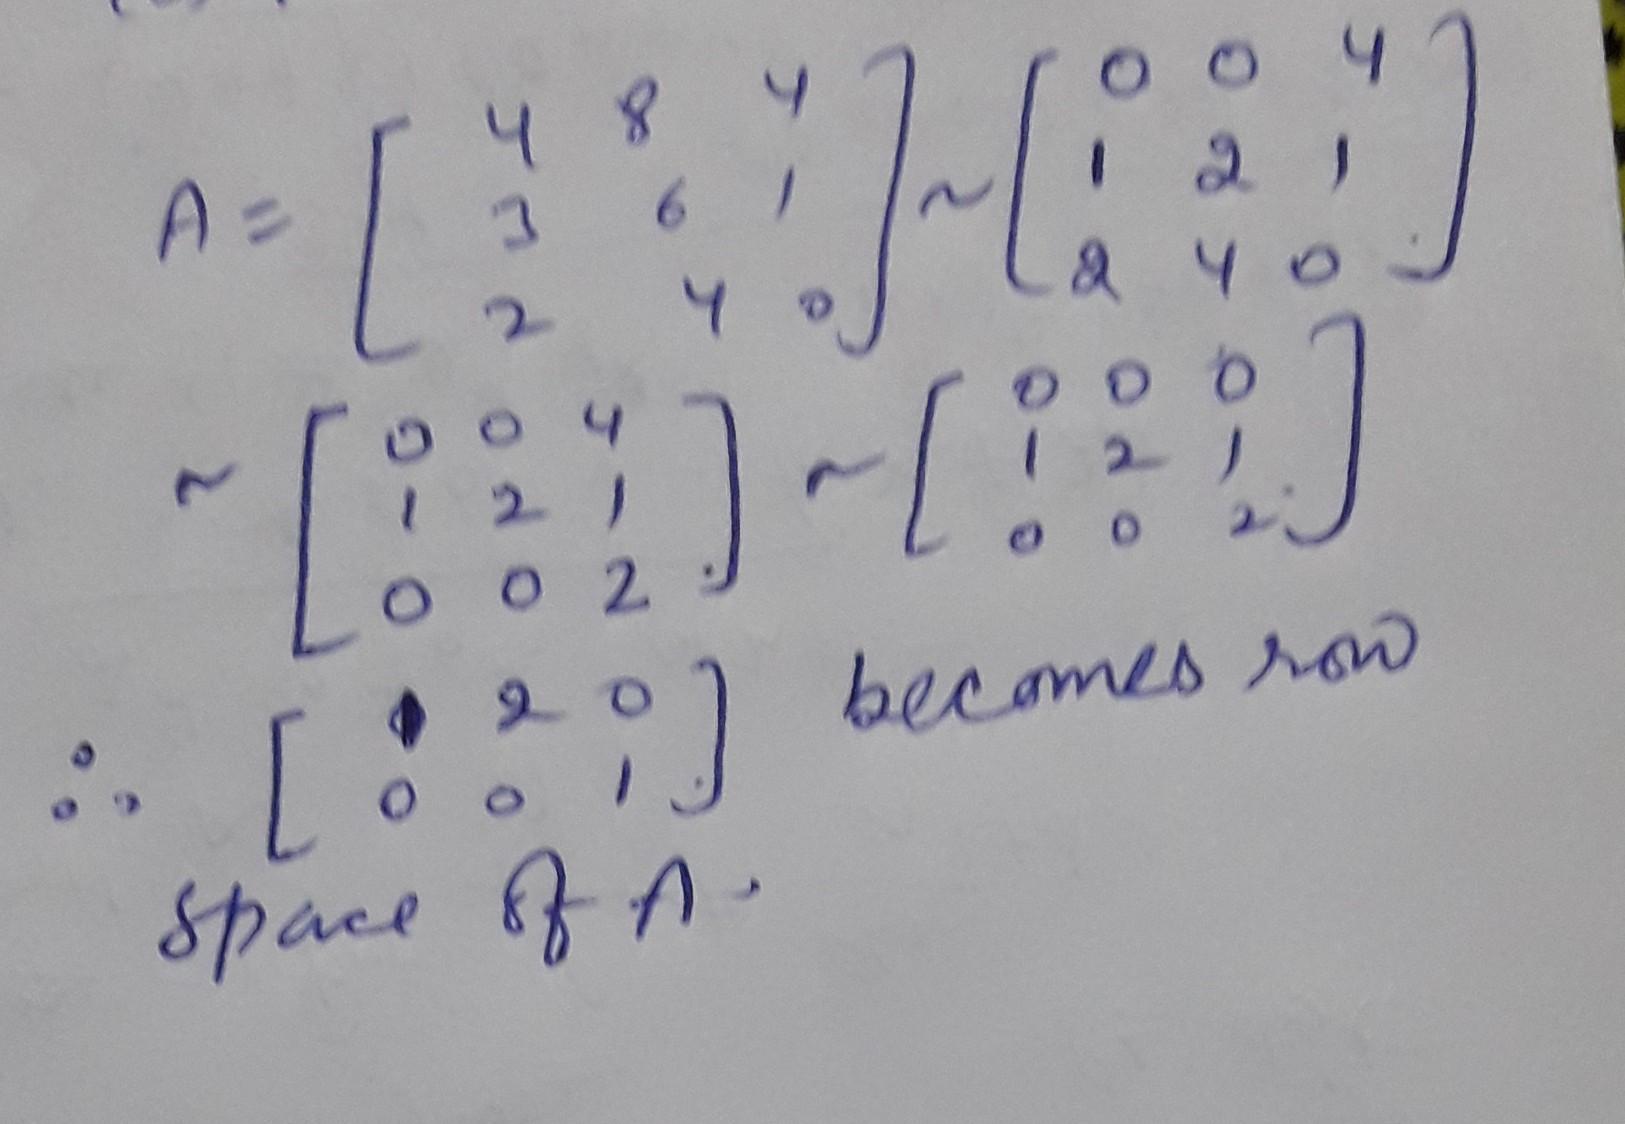 A = [ 4 8 4 ; 3 6 1 ; 2 4 0 ] ~ [ 0 0 4 ; 1 2 1 ; 2 4 0 ]
~ [ 0 0 4 ; 1 2 1 ; 0 0 2 ] ~ [ 0 0 0 ; 1 2 1 ; 0 0 2 ]
∴ [ 1 2 0 ; 0 0 1 ] becomes row
space of A.